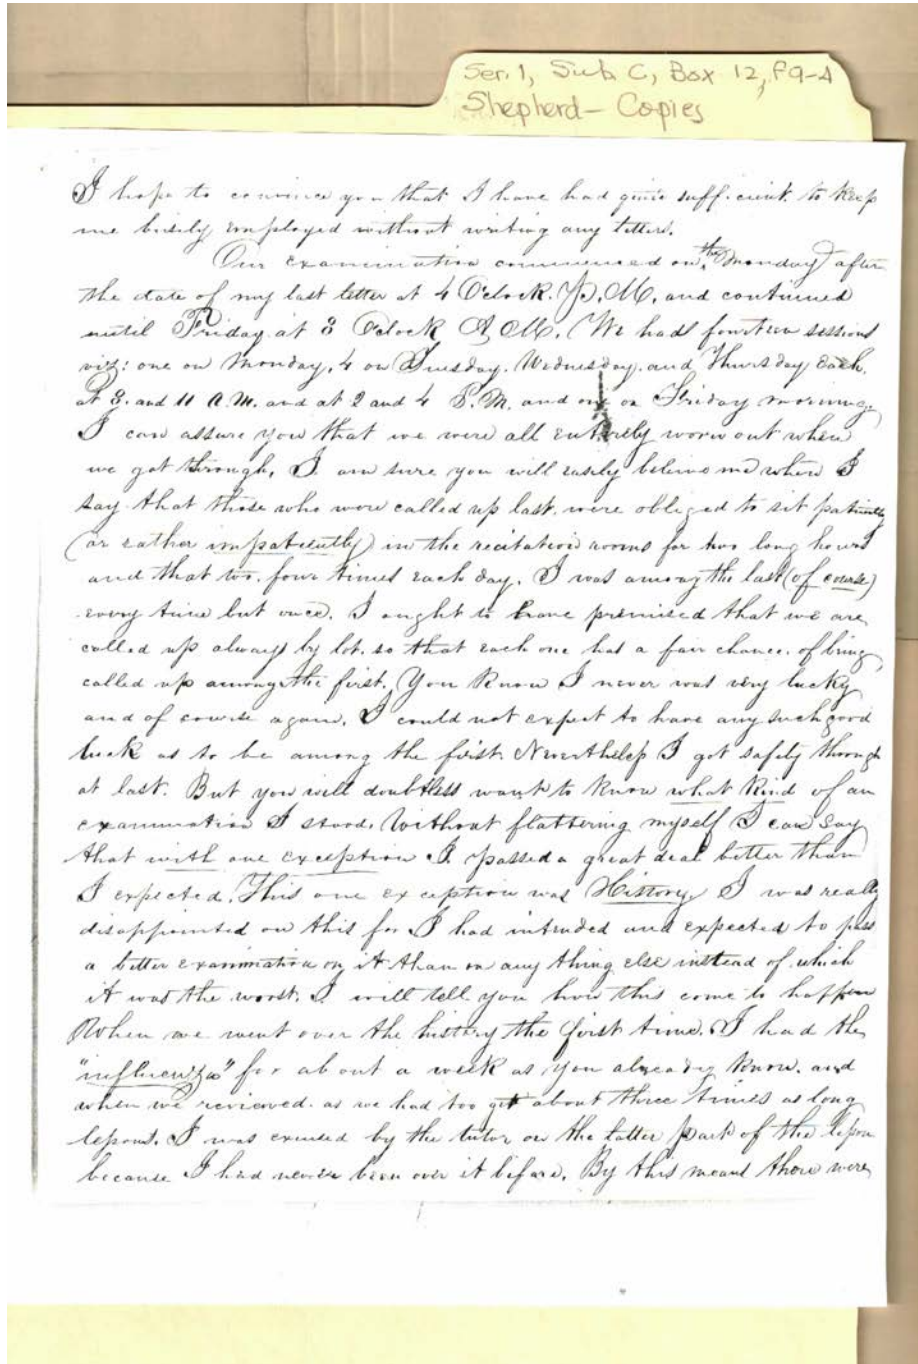 Ser. 1, Sub C, Box 12, F9-A
Shepherd - Copies
I hope to convince you that I have had quite sufficient to keep
me busily employed without writing any letters.
Our examination commenced on the Monday after
the date of my last letter at 4 Oclock. P. M. and continued
until Friday at 8 Oclock A M. We had fourteen sessions
viz: one on Monday, 4 on Tuesday. Wednesday. and Thursday each.
at 8. and 11 A.M. and at 2 and 4 P.M. and one on Friday morning.
I can assure you that we were all entirely worn out when
we got through. I am sure you will easily believe me when I
say that those who were called up last were obliged to sit patiently
(or rather impatiently) in the recitation rooms for two long hours
and that too. four times each day. I was among the last (of course)
every time but once. I ought to have premised that we are
called up always by lot. so that each one has a fair chance. of being
called up among the first. You know I never was very lucky
and of course again. I could not expect to have any such good
luck as to be among the first. Nevertheless I got safely through
at last. But you will doubtless want to know what kind of an
examination I stood. Without flattering myself I can say
that with one exception I passed a great deal better than
I expected. This one exception was History. I was really
disappointed on this for I had intended and expected to pass
a better examination on it than on any thing else instead of which
it was the worst. I will tell you how this come to happen
When we went over the history the first time. I had the
"influenza" for about a week as you already know. and
when we reviewed. as we had too get about three times as long
lessons. I was excused by the tutor on the latter part of the lesson
because I had never been over it before. By this means there were